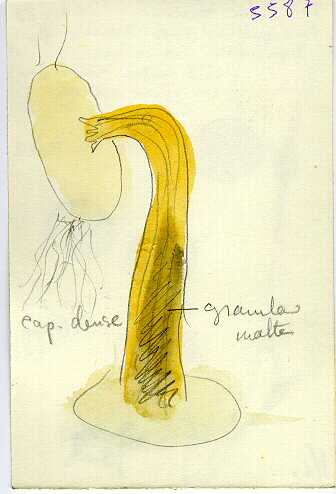 5587
cap. dense
granular
matter